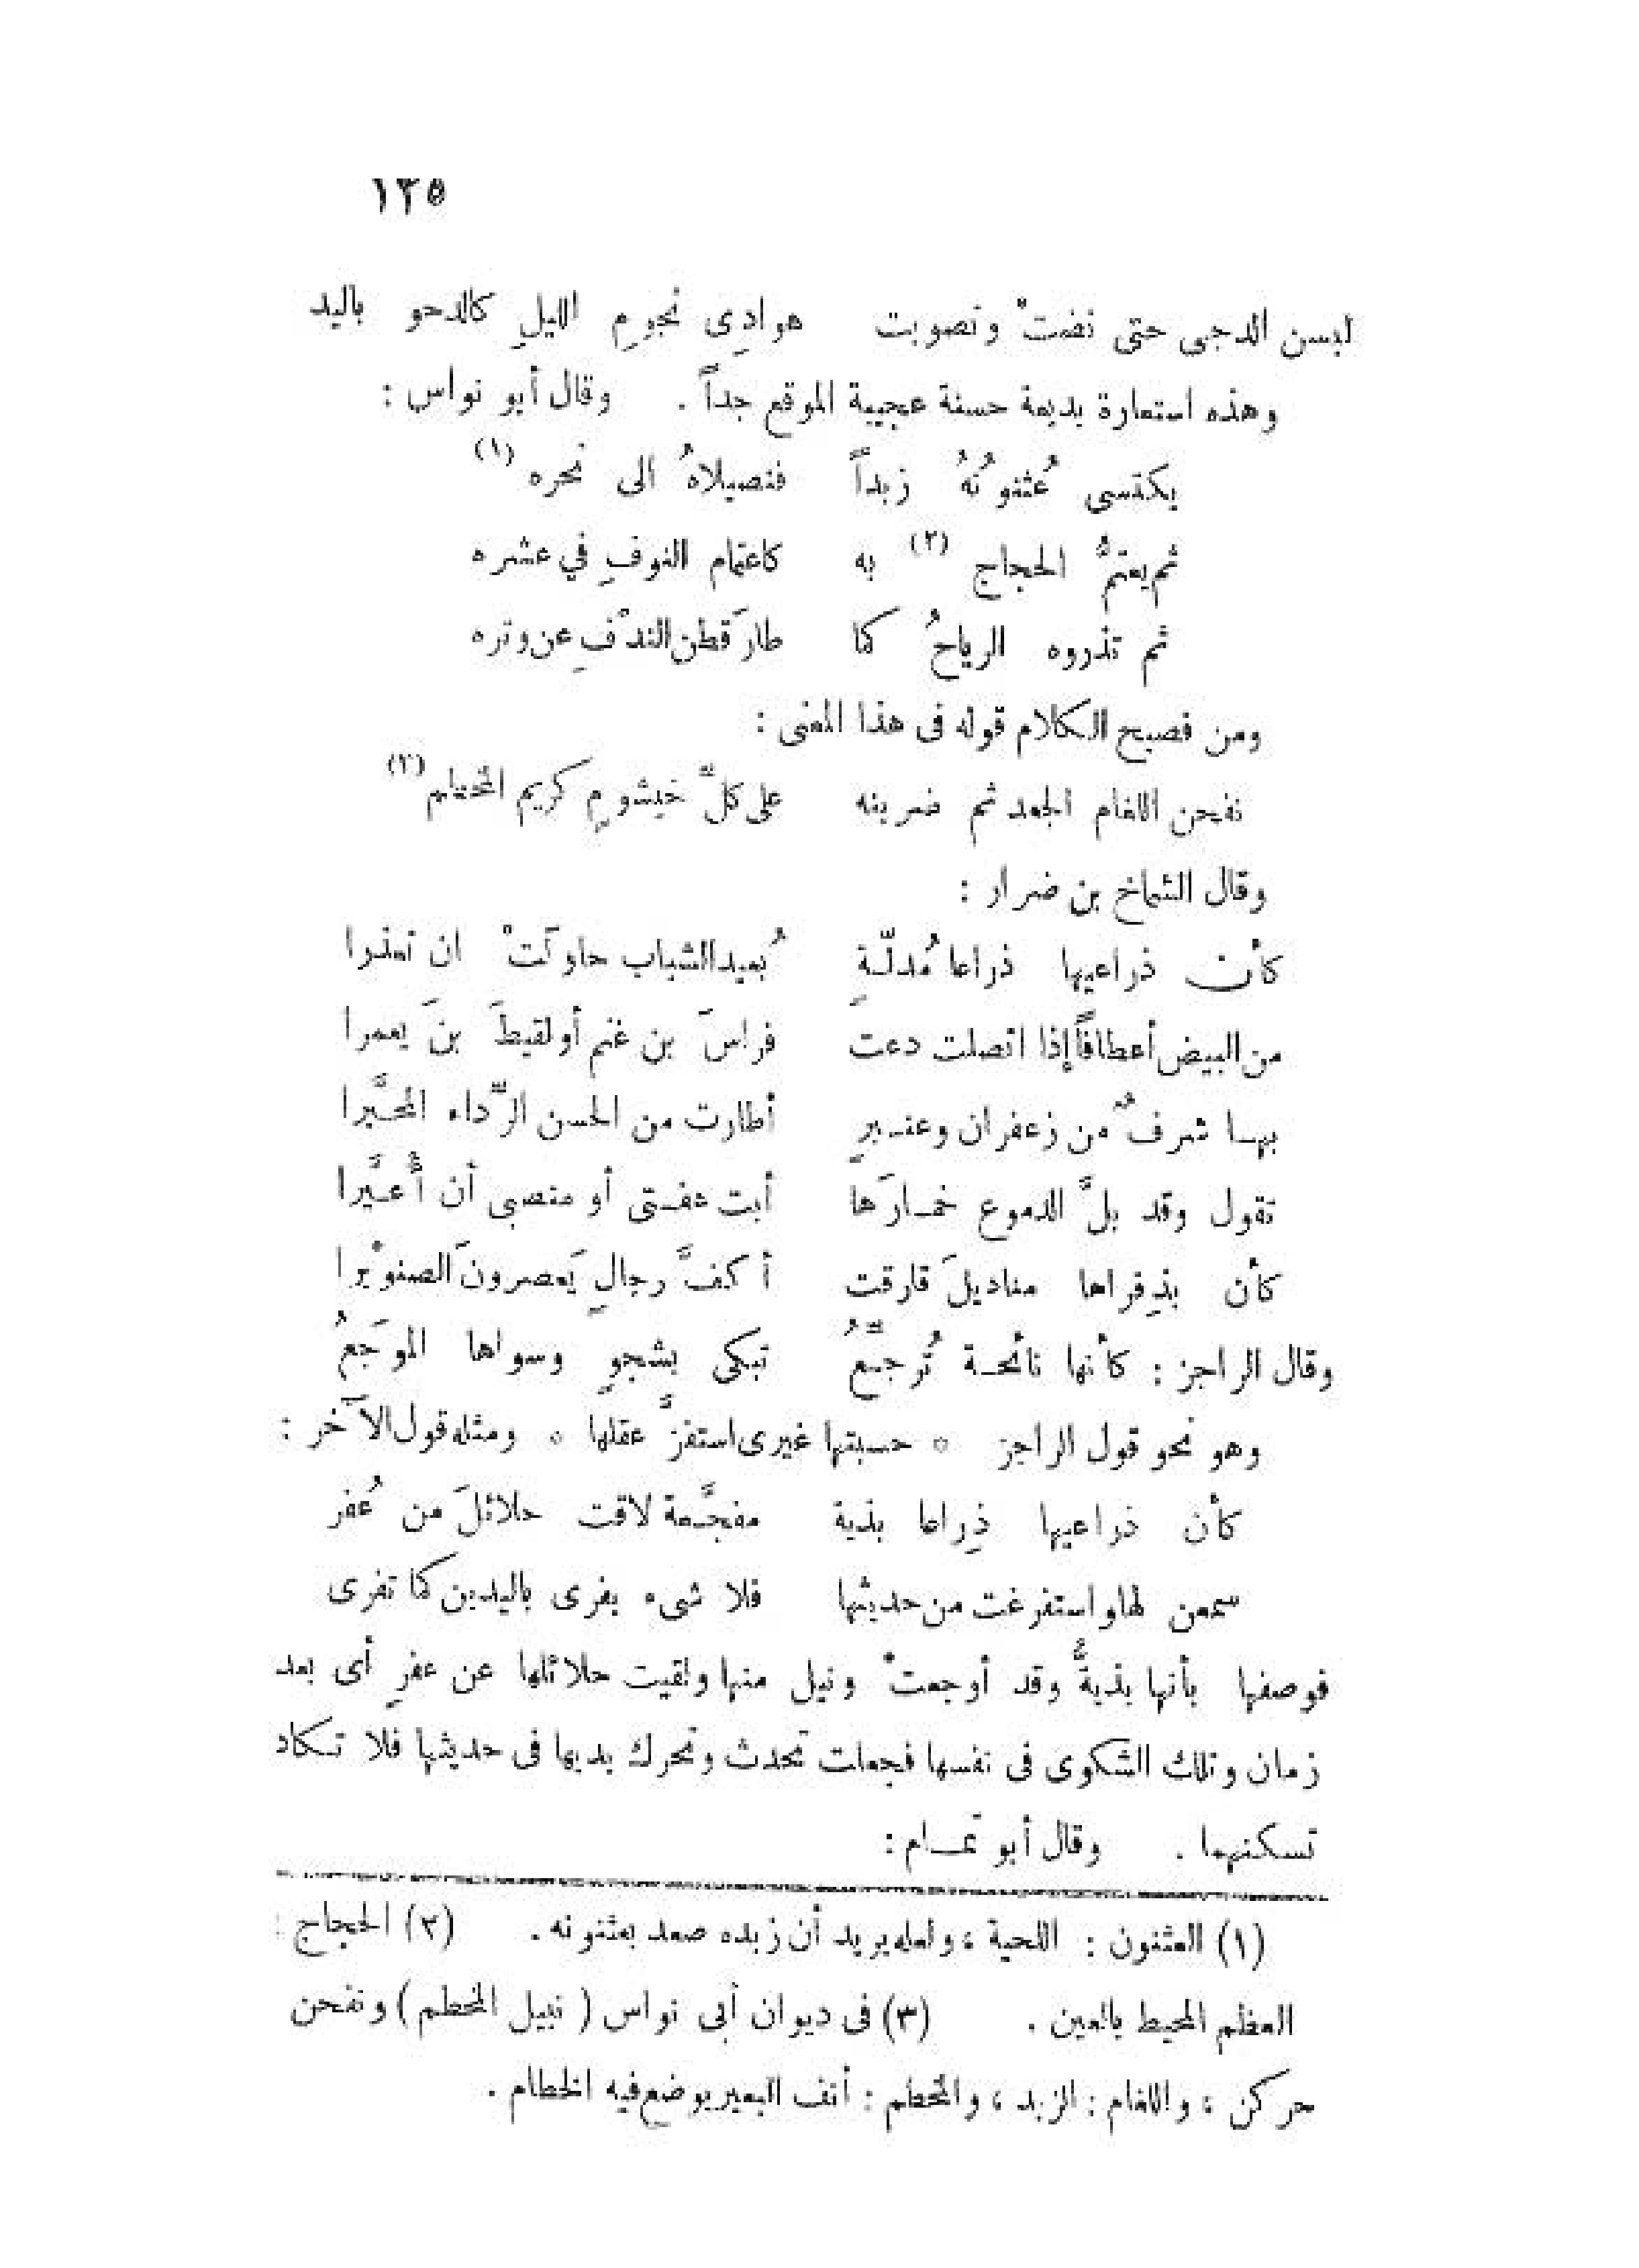 ١٢٥
لبسن الدجى حتى نضتْ وتصوبت هوادِى نجومِ الليلِ كالدحو باليد
وهذه استعارة بديعة حسنة عجيبة الموقع جداً . وقال أبو نواس :
يكتسى عُثنونُهُ زبداً فنصيلاهُ الى نحره (١)
ثم يعتمُّ الحجاج (٢) به كاعتمام الفوفِ في عشره
ثم تذروه الرياحُ كما طارَ قطن الندْفِ عن وتره
ومن فصيح الكلام قوله فى هذا المعنى :
نفحن اللغام الجعد ثم ضربنه على كلَّ خيشومٍ كريم المخطم (٣)
وقال الشماخ بن ضرار :
كأن ذراعيها ذراعا مُدلّةٍ بُعيد الشباب حاولَتْ ان تعذرا
من البيض أعطافاً إذا اتصلت دعت فراسَ بن غنم أو لقيطَ بنَ يعمرا
بها شرفٌ من زعفران وعنبرٍ أطارت من الحسن الرّداء المحبَّرا
تقول وقد بلَّ الدموع خمارَها أبت عفتى أو منصبى أن أُعيَّرا
كأن بذِفراها مناديلَ قارقت أكفَّ رجالٍ يَعصرونَ الصنوْبرا
وقال الراجز : كأنها نائحة تُرجّعُ تبكى بشجوٍ وسواها الموجَعُ
وهو نحو قول الراجز ٭ حسبتها غيرى استفزَّ عقلها ٭ ومثله قول الآخر :
كأن ذراعيها ذِراعا بذية مفجَّعة لاقت حلائلَ من عُفر
سمعن لها واستفرغت من حديثها فلا شىء يفرى باليدين كما تفرى
فوصفها بأنها بذيةٌ وقد أوجعتْ ونيل منها ولقيت حلائلها عن عفرٍ أى بعد
زمان وتلك الشكوى فى نفسها فجعلت تحدث وتحرك يديها فى حديثها فلا تكاد
تسكنهما . وقال أبو تمام :
(١) العثنون : اللحية ، ولعله يريد أن زبده صعد بعثنونه . (٢) الحجاج :
العظم المحيط بالعين . (٣) فى ديوان أبى نواس ( نبيل المخطم ) ونفحن
حركن ، واللغام : الزبد ، والمخطم : أنف البعير يوضع فيه الخطام .